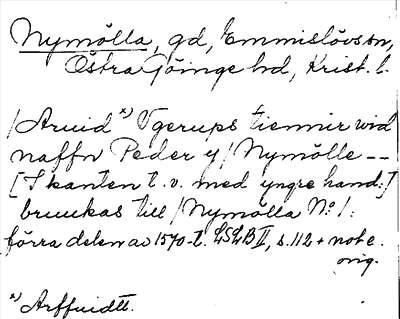 Nymölla, gd, Emmislövs sn,
Östra Göinge hd, Krist. l.
/Aruid x) Vgerups tiennir wid
naffn Peder y/Nymölle --
[I kanten t. v. med yngre hand:]
bruukas till/Nymölla No 1/.
förra delen av 1570-t. LSLB II, s. 112 + not e.
orig.
x) Arffuidtt.